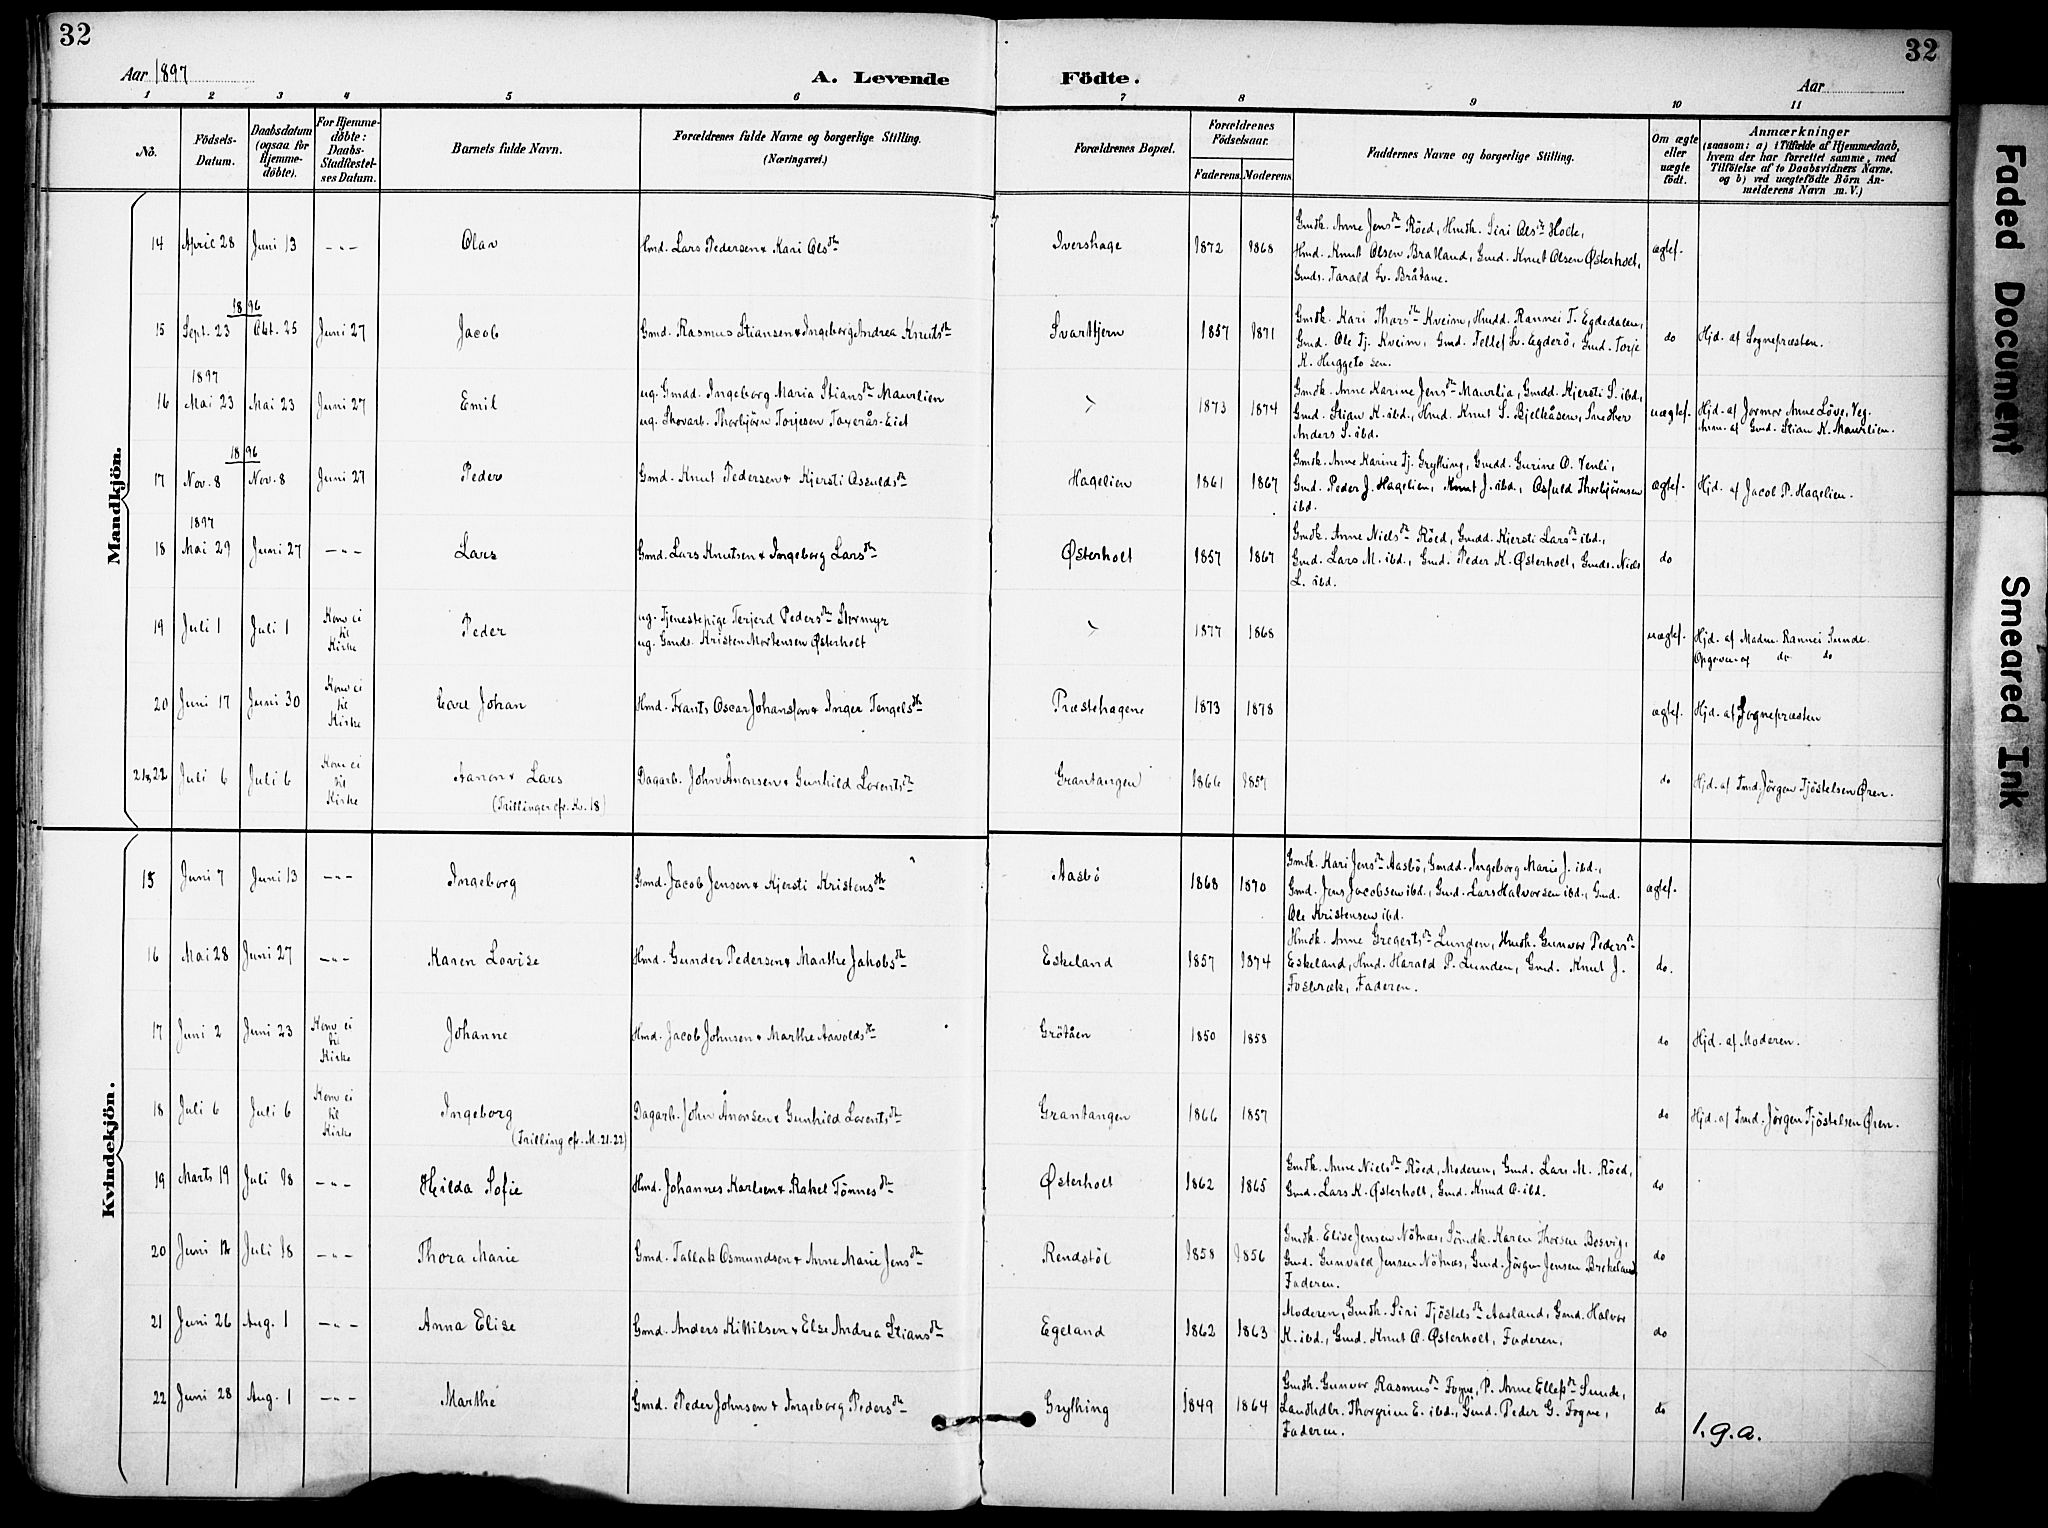 32
32
Aar 1897
A. Levende
Födte.
Aar
1 2 3 4 5 6 7 8 9 10 11
No.
Födsels-Datum.
Daabsdatum (ogsaa for Hjemme-döbte).
For Hjemme-döbte: Daabs-Stadfæstel-ses Datum.
Barnets fulde Navn.
Forældrenes fulde Navne og borgerlige Stilling. (Næringsvei.)
Forældrenes Bopæl.
Forældrenes Födselsaar.
Faderens. Moderens.
Faddernes Navne og borgerlige Stilling.
Om ægte eller uægte födt.
Anmærkninger (saasom: a) i Tilfælde af Hjemmedaab, hvem der har forrettet samme, med Tilföielse af to Daabsvidners Navne. og b) ved uægtefödte Börn An-melderens Navn m. V.)
Mandkjön.
14 April 28 Juni 13 -"- Olav Hmd. Lars Pedersen & Kari Olsdtr Ivershage 1872 1868 Gmdk. Anne Jensdtr Röed, Hmdk. Siri Olsdtr Holte,
Hmd. Knut Olsen Bratland, Gmd. Knut Olsen Østerholt, ægtef.
Gmds. Tarald L. Bråtane.
1896
15 Sept. 23 Okt. 25 Juni 27 Jacob Gmd. Rasmus Stiansen & Ingeborg Andrea Knutsdtr Svarttjern 1857 1871 Gmdk. Kari Tharsdtr Kveim, Hmdd. Rannei T. Egdedalen,
Gmd. Ole Tj. Kveim, Gmd. Tellef L. Egderö, Gmd. Torje do Hjd. af Sognepræsten.
K. Huggeto sen.
1897
16 Mai 23 Mai 23 Juni 27 Emil ug. Gmdd. Ingeborg Maria Stiansdtr Maurlien
ug. Skovarb. Thorbjörn Torjesen Taxerås-Eiet 1873 1874 Gmdk. Anne Karine Jensdtr Maurlia, Gmdd. Kjersti S. ibd,
Gmd. Stian K. ibd., Hmd. Knut S. Bjelkåsen, Smedker uægtef. Hjd. af Jormor Anne Löve, Veg.
Anders S. ibd. Anm. af Gmd. Stian K. Maurlien.
1896
17 Nov. 8 Nov. 8 Juni 27 Peder Gmd. Knut Pedersen & Kjersti Osuldsdtr Hagelien 1861 1867 Gmdk. Anne Karine Tj. Grytting, Gmdd. Gurine O. Venli,
Gmd. Peder J. Hagelien, Knut J. ibd., Osfuld Thorbjörnsen ægtef. Hjd. af Jacob P. Hagelien.
ibd.
1897
18 Mai 29 Juni 27 -"- Lars Gmd. Lars Knutsen & Ingeborg Larsdtr Østerholt 1857 1867 Gmdk. Anne Nielsdtr Röed, Gmdd. Kjersti Larsdtr ibd.,
Gmd. Lars M. ibd., Gmd. Peder K. Østerholt, Gmds. Niels do
L. ibd.
19 Juli 1 Juli 1 Kom ei til Kirke Peder ug. Tjenestepige Terjerd Pedersdtr Stormyr
ug. Gmds. Kristen Mortensen Østerholt 1877 1868 uægtef. Hjd. af Madm. Rannei Sunde.
Opgiven af do do
20 Juni 17 Juni 30 Kom ei til Kirke Carl Johan Hmd. Frants Oscar Johansson & Inger Tengelsdtr Præstehagene 1873 1878 ægtef. Hjd. af Sognepræsten
21&22 Juli 6 Juli 6 Kom ei til Kirke Aanon & Lars Dagarb. John Ånonsen & Gunhild Lorentsdtr Grantangen 1866 1857 do Hjd. af Smd. Jörgen Tjöstelsen Øren.
(Trillinger cfr. Kv. 18)
Kvindekjön.
15 Juni 7 Juni 13 -"- Ingeborg Gmd. Jacob Jensen & Kjersti Kristensdtr Aasbö 1868 1870 Gmdk. Kari Jensdtr Aasbö, Gmdd. Ingeborg Marie J. ibd.,
Gmd. Jens Jacobsen ibd., Gmd. Lars Halvorsen ibd., Gmd. ægtef.
Ole Kristensen ibd.
16 Mai 28 Juni 27 -"- Karen Lovise Hmd. Gunder Pedersen & Marthe Jakobsdtr Eskeland 1857 1874 Hmdk. Anne Gregertsdtr Lunden, Hmdk. Gunvor Pedersdtr
Eskeland, Hmd. Harald P. Lunden, Gmd. Knut J. do.
Fosbræk, Faderen.
17 Juni 2 Juni 23 Kom ei til Kirke Johanne Hmd. Jacob Johnsen & Marthe Aavoldsdtr Grötåen 1850 1858 do Hjd. af Moderen.
18 Juli 6 Juli 6 Kom ei til Kirke Ingeborg Dagarb. John Ånonsen & Gunhild Lorentsdtr Grantangen 1866 1857 do Hjd. af Smd. Jörgen Tjöstelsen Øren.
(Trilling cfr. M. 21-22)
19 Marts 19 Juli 18 -"- Hilda Sofie Hmd. Johannes Karlsen & Rakel Tönnesdtr Østerholt 1862 1865 Gmdk. Anne Nielsdtr Röed, Moderen, Gmd. Lars M. Röed,
Gmd. Lars K. Østerholt, Gmd. Knud O. ibd. do
20 Juni 12 Juli 18 -"- Thora Marie Gmd. Tallak Osmundsen & Anne Marie Jensdtr Rendstöl 1858 1856 Gmdk. Elise Jensen Nötnæs, Sömdk. Karen Thorsen Bosvig,
Gmd. Gunvald Jensen Nötnæs, Gmd. Jörgen Jensen Brekeland do
Faderen.
21 Juni 26 Aug. 1 -"- Anna Elise Gmd. Anders Kittilsen & Else Andrea Stiansdtr Egeland 1862 1863 Moderen, Gmdk. Siri Tjöstelsdtr Aasland, Gmd. Halvor
K. ibd., Gmd. Knut O. Østerholt, Faderen. do
22 Juni 28 Aug. 1 -"- Marthe Gmd. Peder Johnsen & Ingeborg Pedersdtr Grytting 1849 1864 Gmdk. Gunvor Rasmusdtr Fogne, P. Anne Ellefsdtr Sunde,
Landhdbr. Thorgrim E. ibd., Gmd. Peder G. Fogne, do
Faderen.
1.g.a.
Faded Document
Smeared Ink